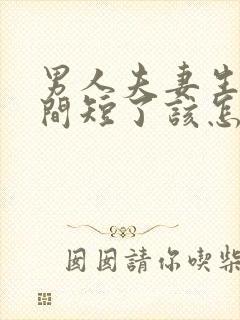 男人夫妻生
間短了該怎
囡囡請你喫柴